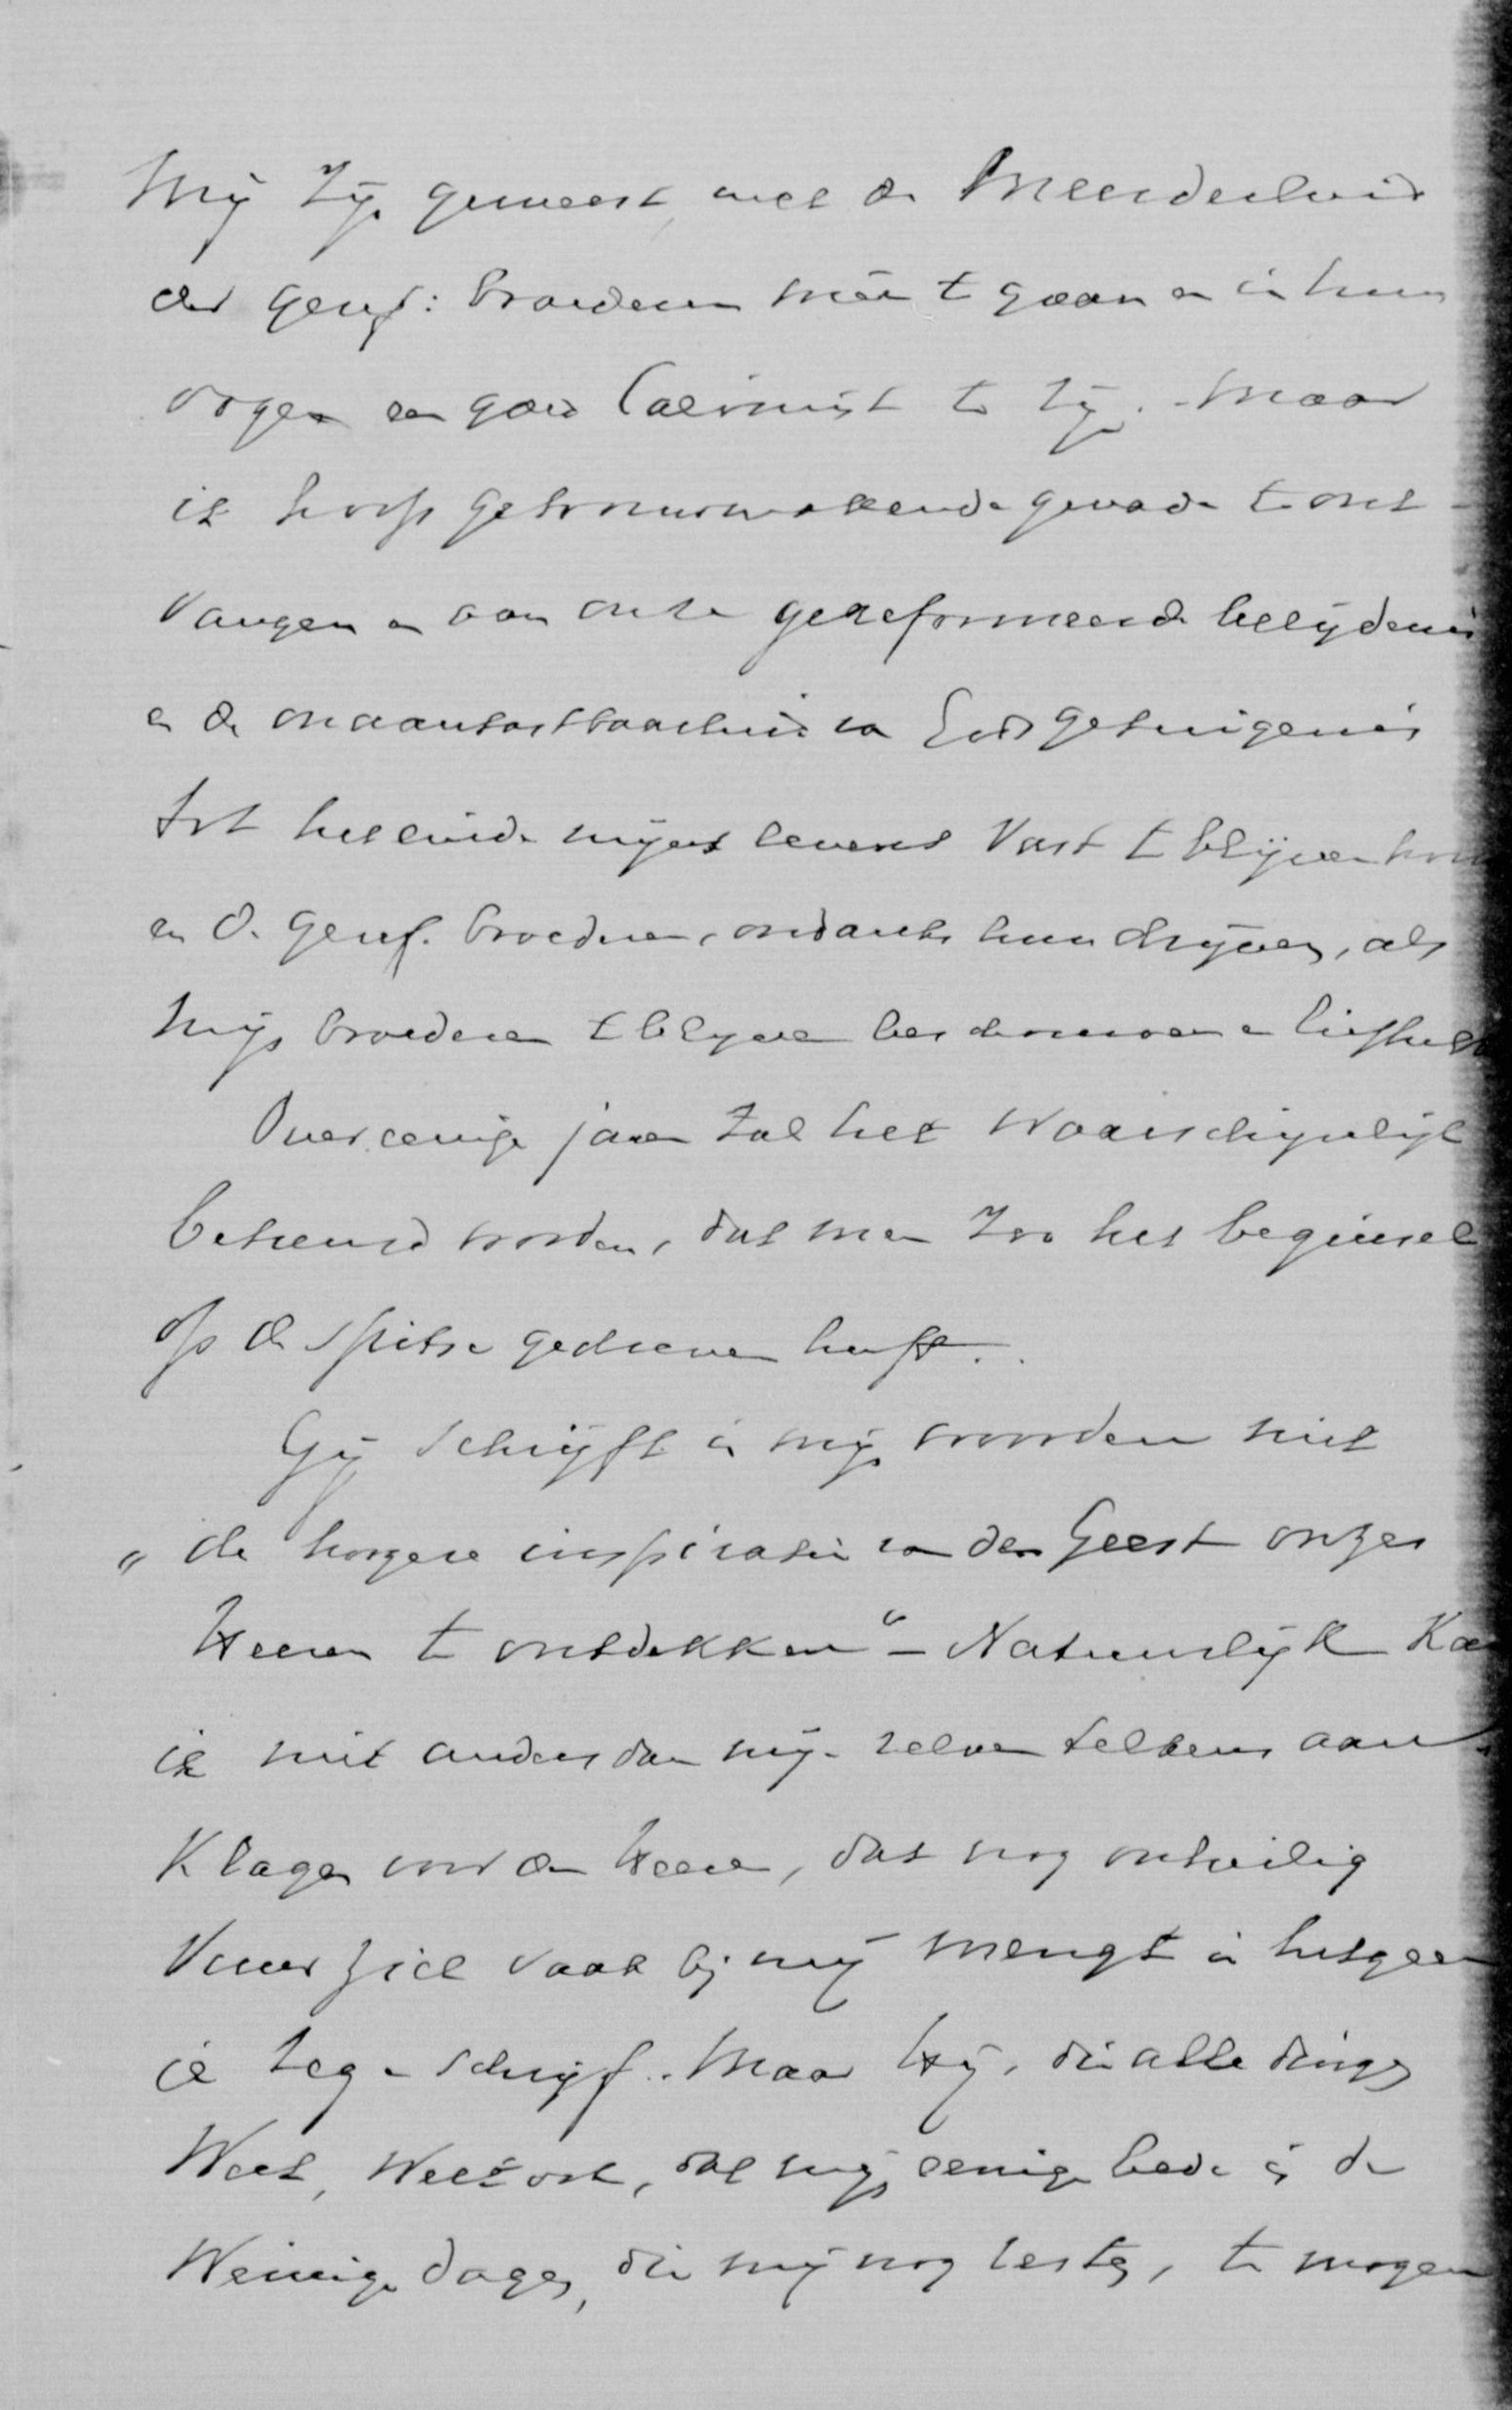 mij zijn geweest, met de meerderheid
der geref: broederen mee te gaan en in hun
oogen een goed Calvinist te zijn. - Maar
ik hoop getrouwmakende genade te ont-
vangen en aan onze gereformeerde belijdenis
en de onaantastbaarheid van Gods getuigenis
tot het einde mijns levens vast te blijven hou
en de geref. broederen, ondanks hun drijven, als
mijn broederen te blijven beschouwen en liefheb
Over eenige jaren zal het waarschijnlijk
betreurd worden, dat men zoo het beginsel
op de spitse gedreven heeft.
Gij schrijft in mijn woorden niet
„de hoogere inspiratie van den Geest onzes
Heeren te ontdekken" - Natuurlijk kan
ik niet anders dan mij-zelven telkens aan-
klagen voor den Heere, dat nog onheilig
vuur zich vaak bij mij mengt in hetgeen
ik zeg en schrijf. Maar Hij, die alle dingen
weet, weet ook, dat mijn eenige bede is de
weinige dagen, die mij nog resten, te mogen